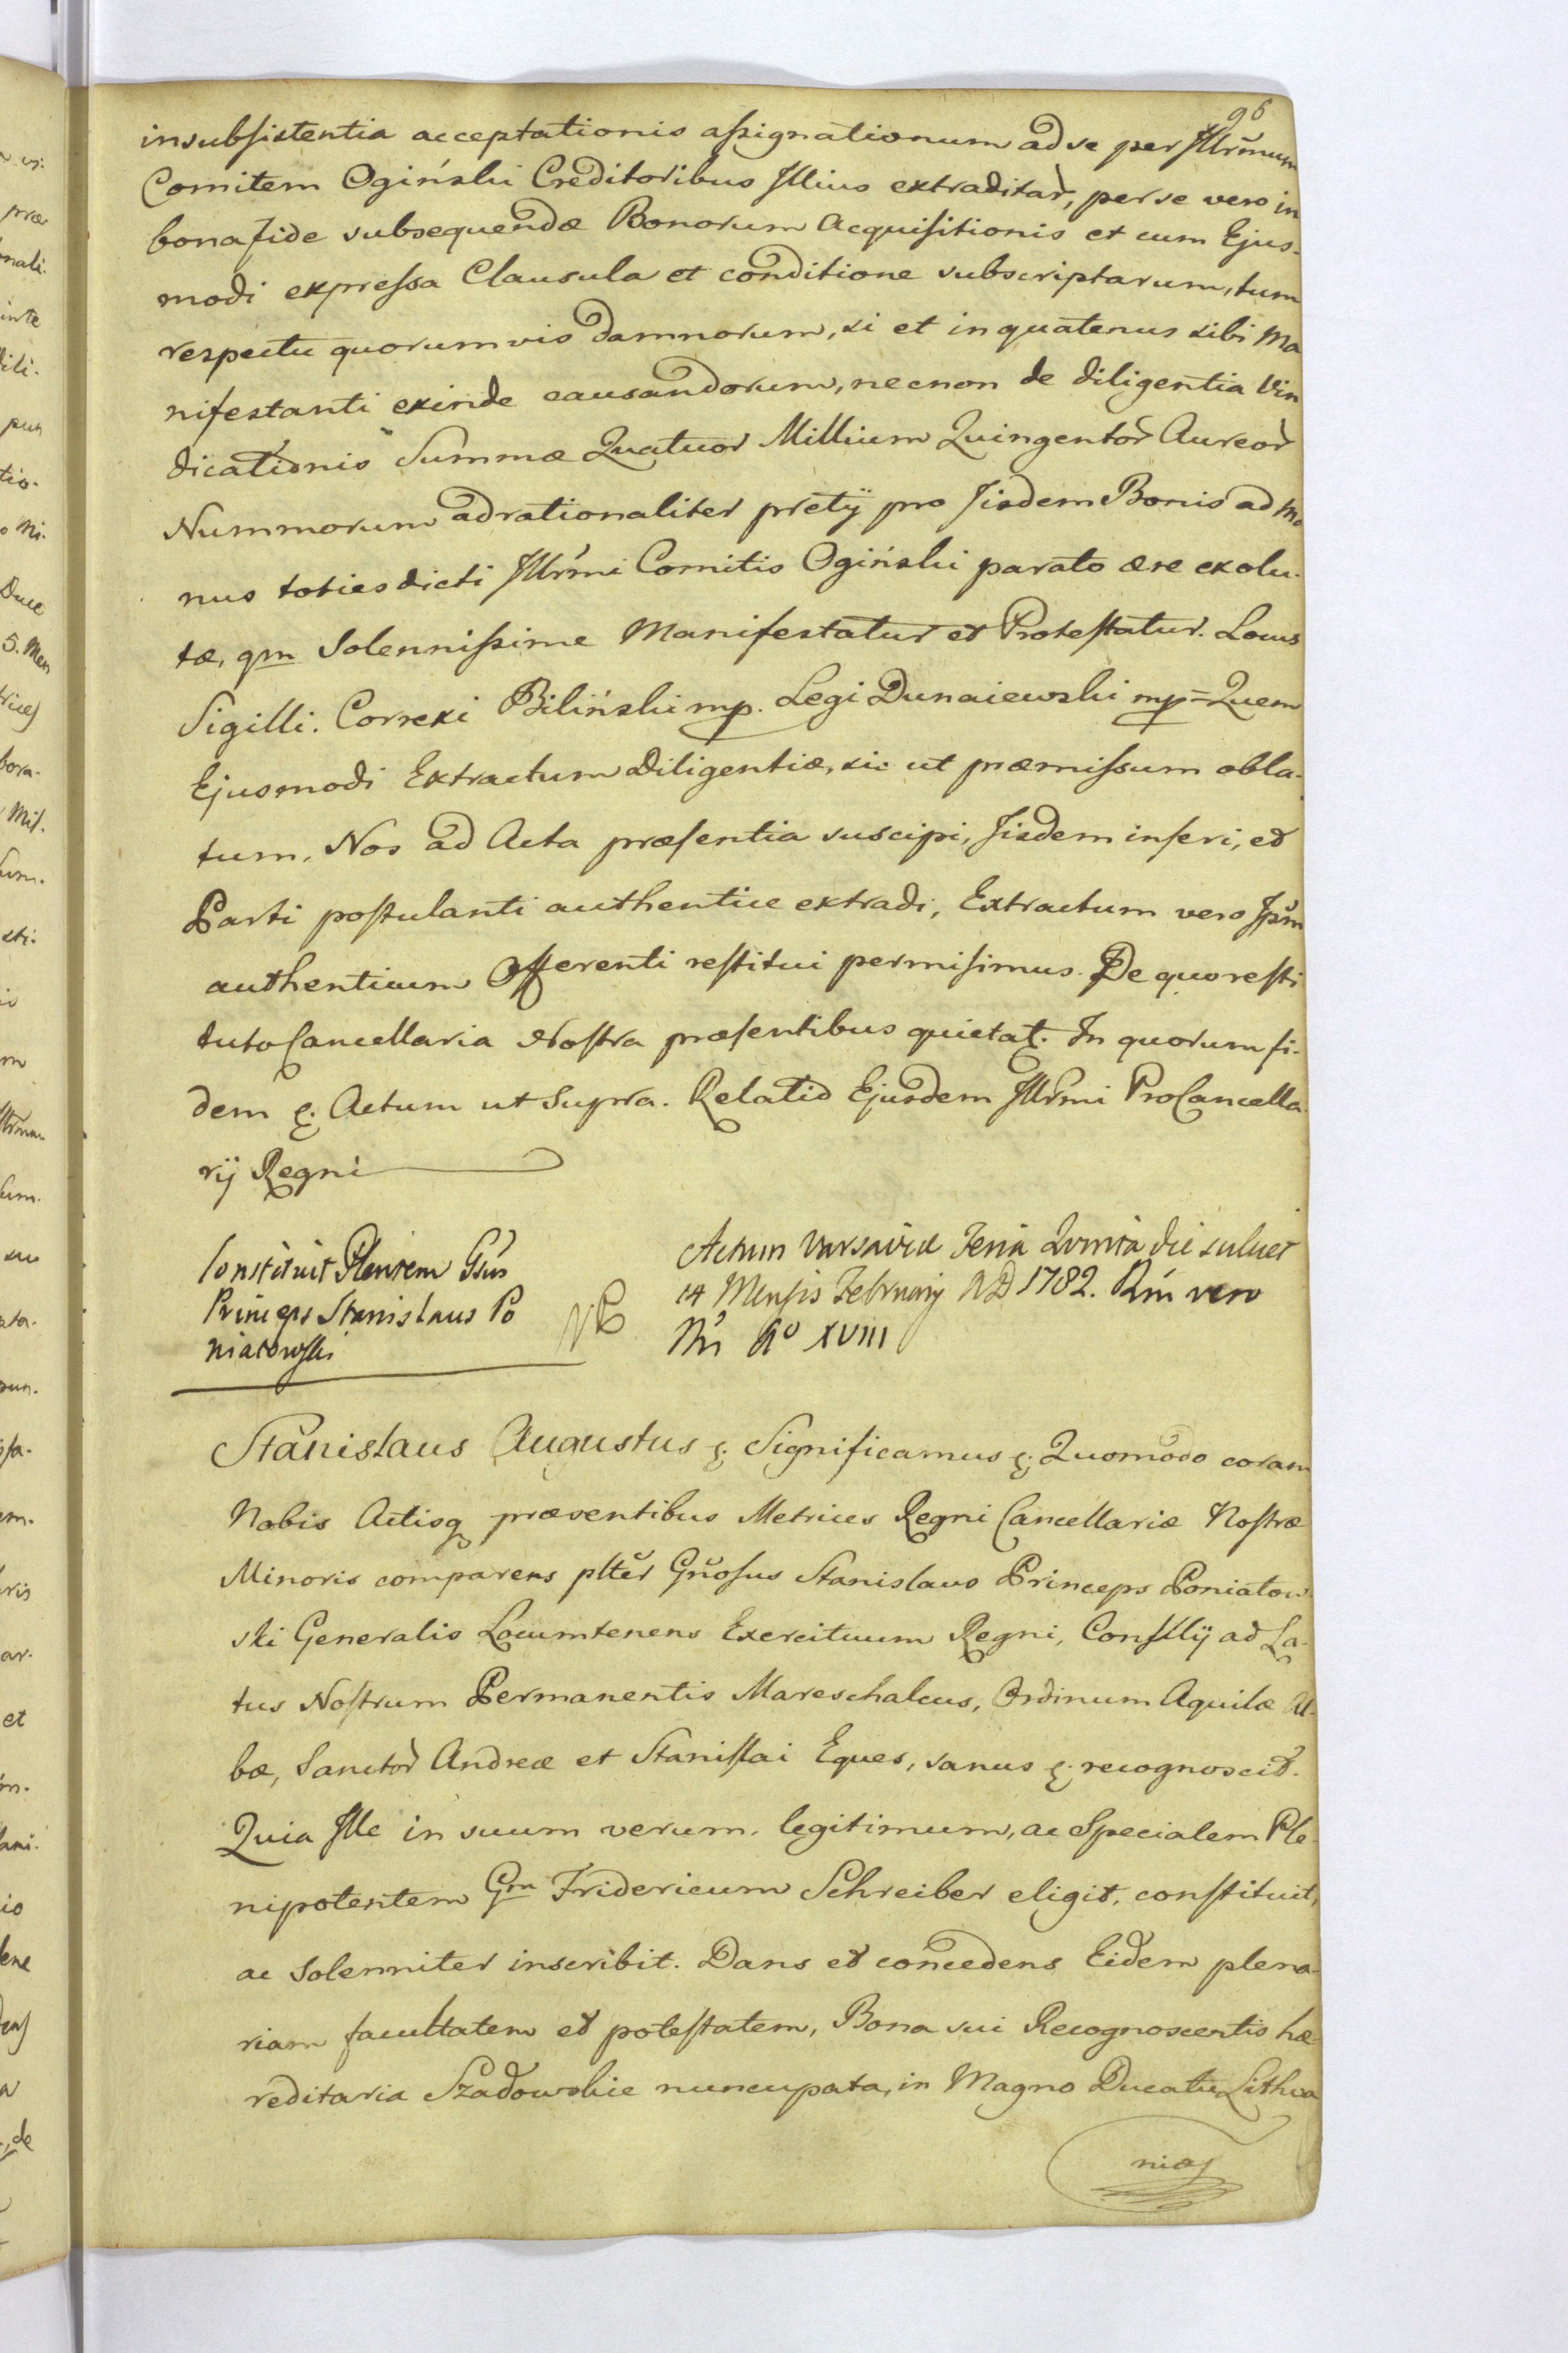 96
insubsistentia acceptationis assignationum ad se per Illrm̃um
Comitem Ogiński Creditoribus Illius extraditar̀, per se vero in
bona fide subsequendæ Bonorum Acquisitionis et cum Ejus-
modi expressa Clausula et conditione subscriptarum, tum
respectu quorumvis damnorum, si et inquatenus sibi Ma
nifestanti exinde causandorum, necnon de diligentia Vin
dicationis Summæ Quatuor Millium Quingentor̀ Aureor̀
Nummorum ad rationaliter pretij pro Iisdem Bonis ad Ma
nus totiesdicti Illrm̃i Comitis Ogiński parato ære exolu-
tæ, qm Solennissime Manifestatur et Protestatur. Locus
Sigilli. Correxi Biliński mp. Legi Dunaiewski mp= Quem
Ejusmodi Extractum Diligentiæ, sic ut præmissum obla-
tum, Nos ad Acta præsentia suscipi, Iisdem inseri, et
Parti postulanti authentice extradi, Extractum vero Ipsm̃
authenticum Offerenti restitui permisimus. De quo resti
tuto Cancellaria Nostra præsentibus quietat. In quorum fi-
dem &. Actum ut Supra. Relatio Ejusdem Illrm̃i ProCancella-
rij Regni
Constituit Plentem Gsus
Princeps Stanislaus Po
niatowski
NB
Actum Varsaviæ Feria Quinta die scilicet
14 Mensis February AD 1782. Rni vero
Nri Ao XVIII
Stanislaus Augustus &. Significamus &. Quomodo coram
Nobis Actisq præsentibus Metrices Regni Cancellariæ Nostræ
Minoris comparens plter Gnosus Stanislaus Princeps Poniatow-
ski Generalis Locumtenens Exercituum Regni, Consilij ad La-
tus Nostrum Permanentis Mareschalcus, Ordinum Aquilæ Al-
bæ, Sanctor̀ Andreæ et Stanislai Eques, sanus &. recognoscit.
Quia Ille in suum verum, legitimum, ac Specialem Ple-
nipotentem Gm Fridericum Schreiber eligit, constituit,
ac Solenniter inscribit. Dans et concedens Eidem plena-
riam facultatem et potestatem, Bona sui Recognoscentis hæ-
reditaria Szadowskie nuncupata, in Magno Ducatu Lithva
niæ